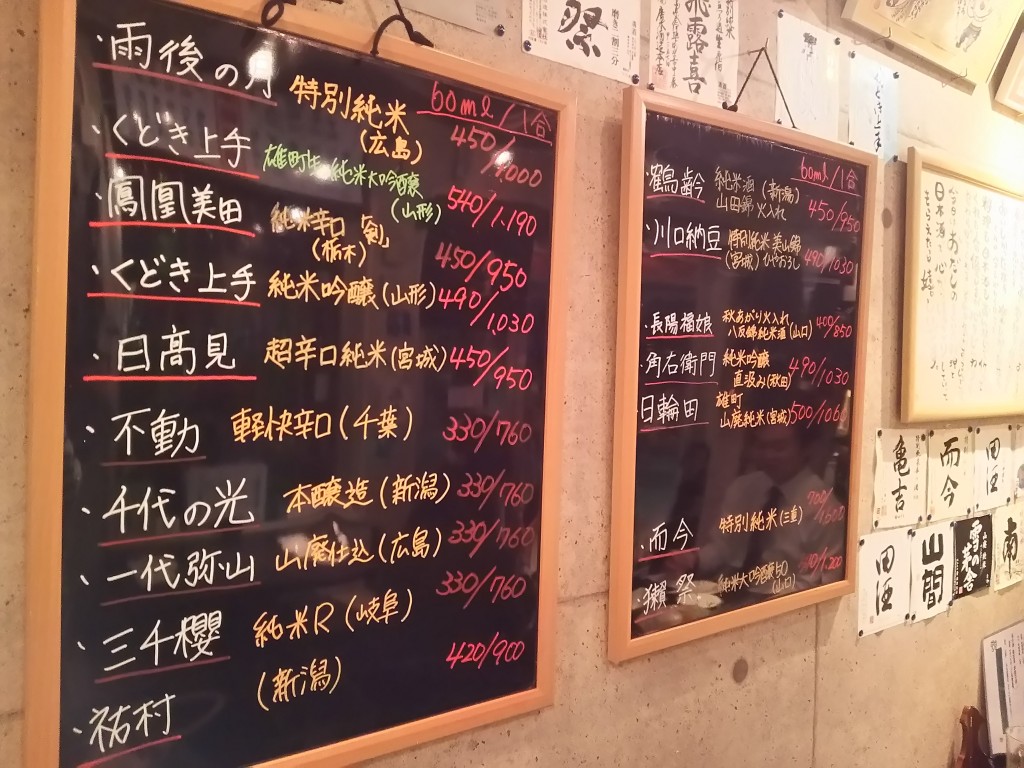 60ml/1合
・雨後の月 特別純米 450/1000
(広島)
・くどき上手 雄町 純米大吟醸
(山形) 540/1.190
・鳳凰美田 純米辛口「剣」
(栃木) 450/950
・くどき上手 純米吟醸(山形) 490/1,030
・日高見 超辛口純米(宮城) 450/950
・不動 軽快辛口(千葉) 330/760
・千代の光 本醸造(新潟) 330/760
・一代弥山 山廃仕込(広島) 330/760
・三千櫻 純米R(岐阜) 330/760
・祐村 (新潟) 420/900
60ml/1合
・鶴齢 純米酒(新潟)
山田錦火入れ 450/950
・川口納豆 特別純米 美山錦
(宮城)ひやおろし 490/1030
・長陽福娘 秋あがり火入れ
八反錦純米酒(山口) 400/850
・角右衛門 純米吟醸
直汲み(秋田) 490/1030
・日輪田 雄町
山廃純米(宮城) 500/1060
・而今 特別純米(三重)
・獺祭 純米大吟醸50
(山口)
祭
飛露喜
くどき上手
日本酒
亀吉
而今
田酒
田酒
山間
雪の茅舎
南